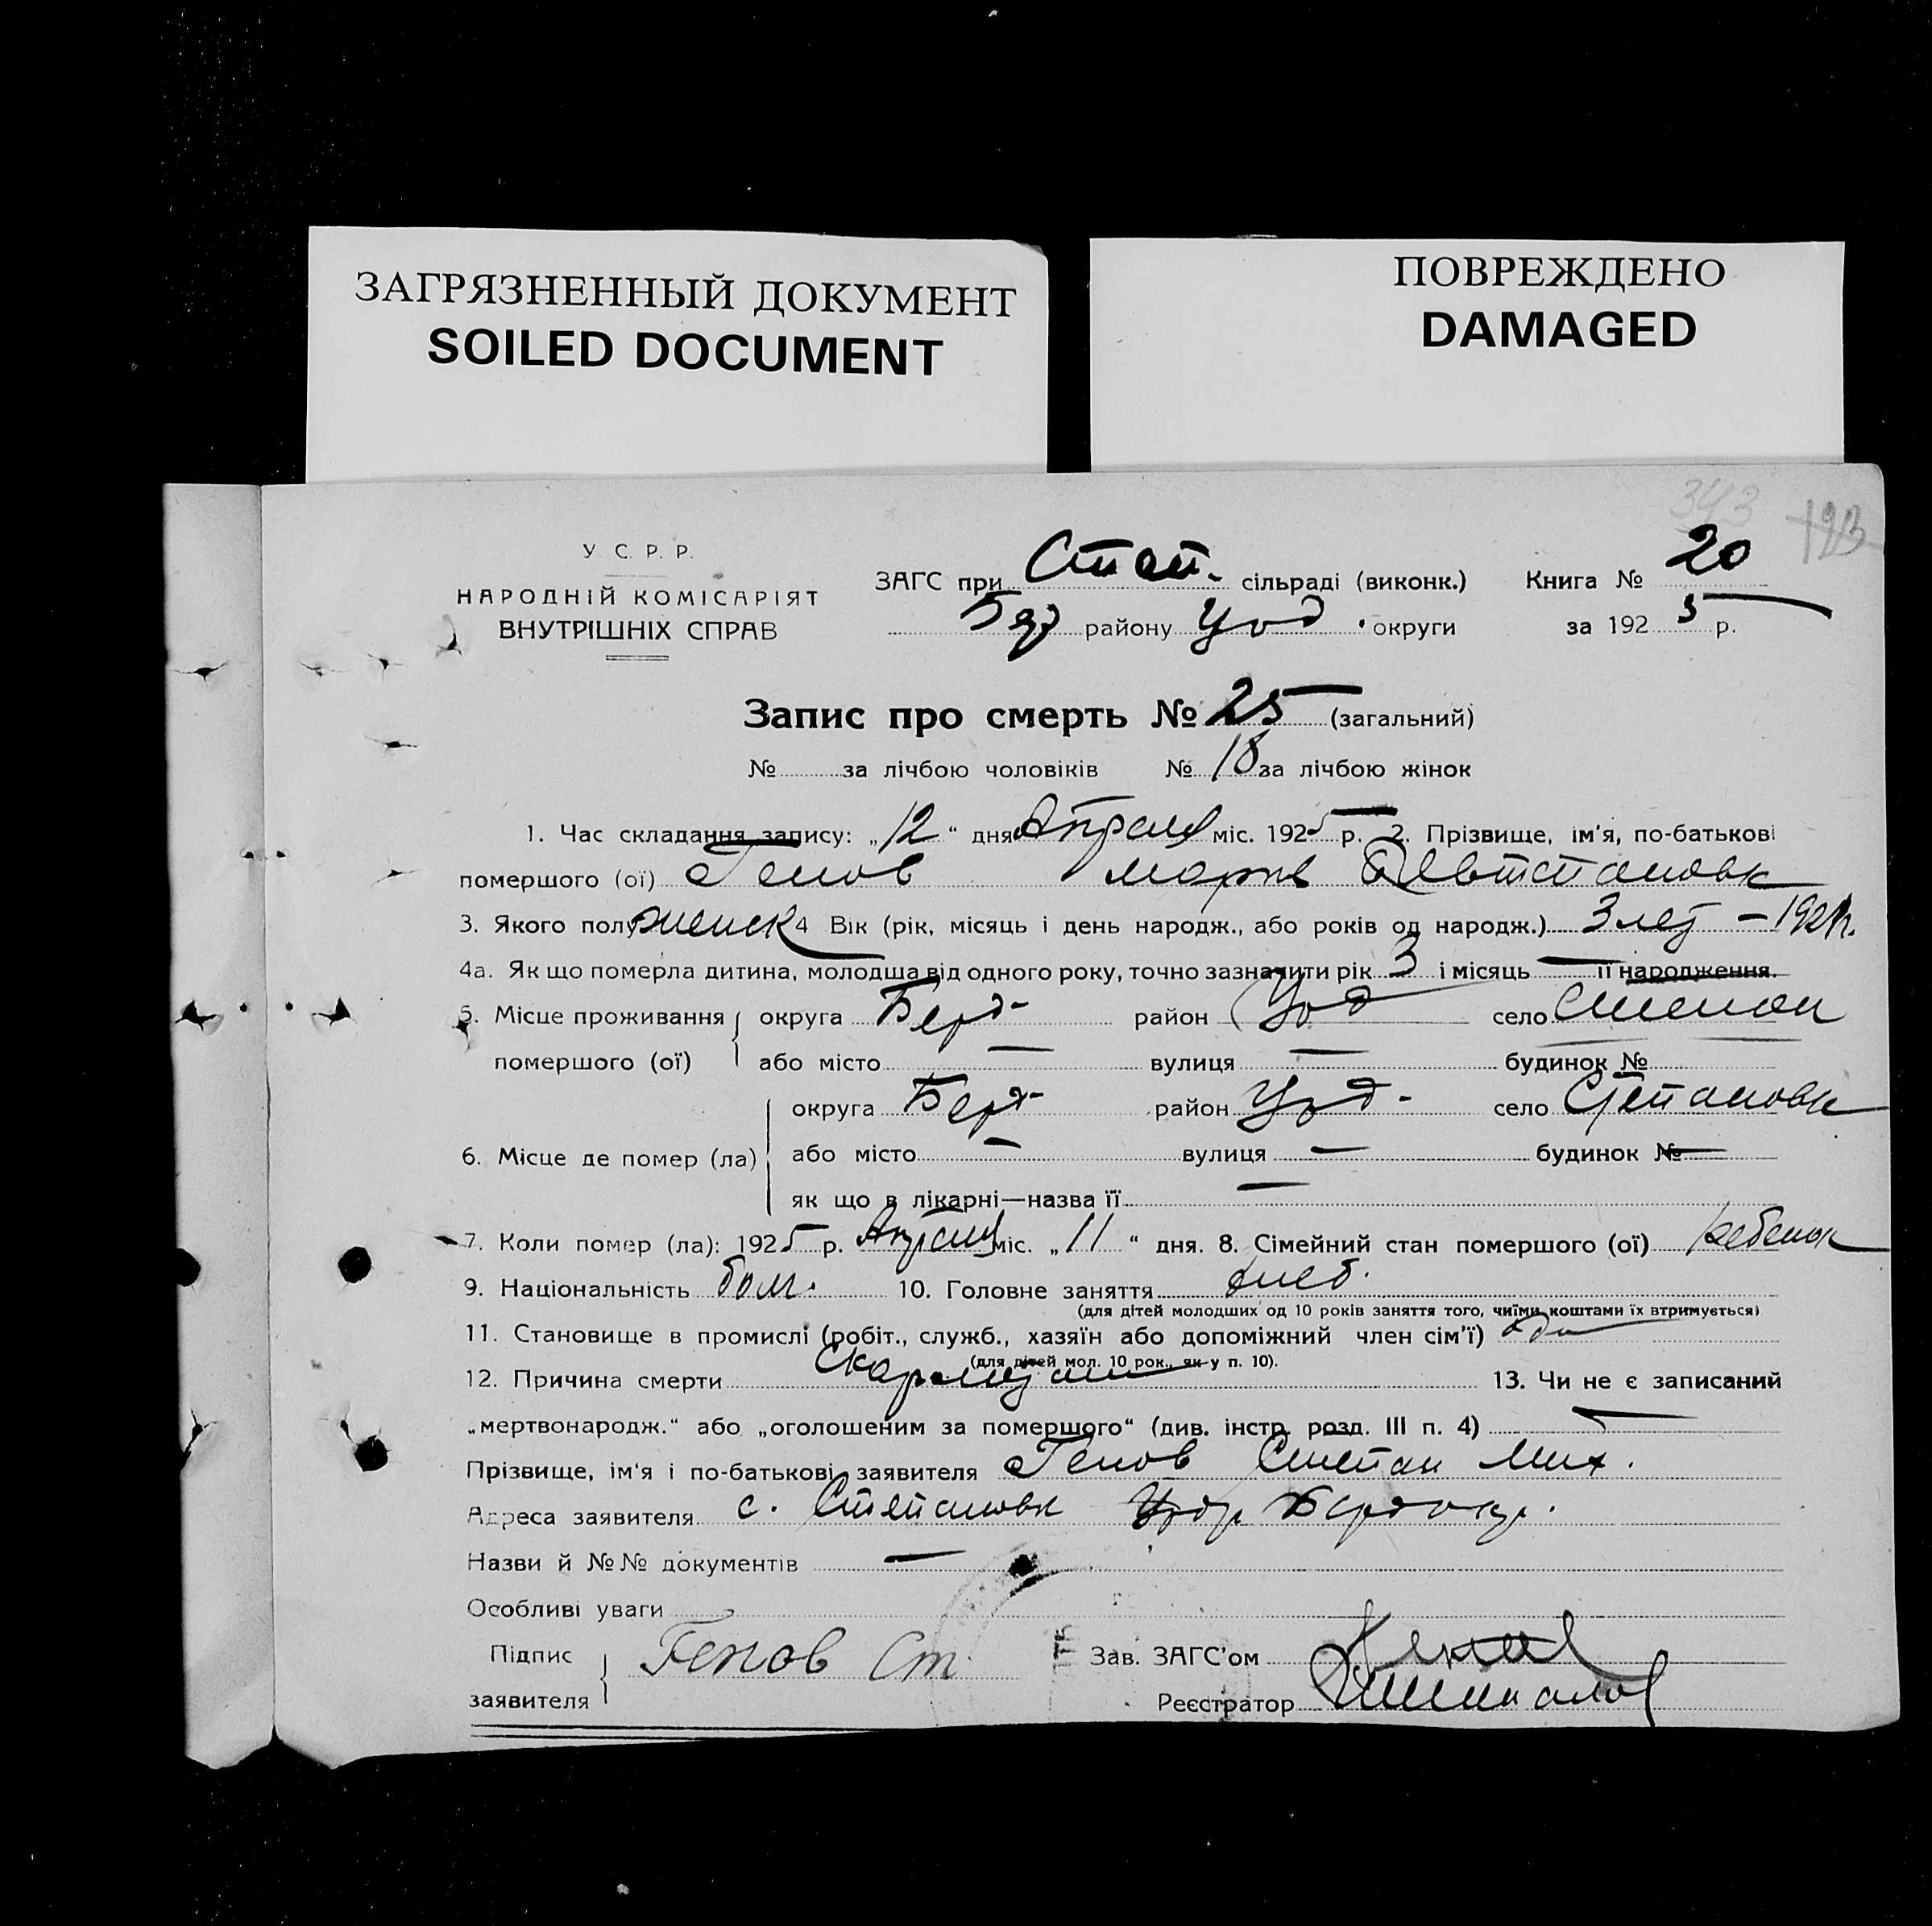 ЗАГРЯЗНЕННЫЙ ДОКУМЕНТ
SOILED DOCUMENT
ПОВРЕЖДЕНО
DAMAGED
343 123
У. С. Р. Р.
НАРОДНІЙ КОМІСАРІЯТ
ВНУТРІШНІХ СПРАВ
ЗАГС при Степ. сільраді (виконк.) Книга № 20
району Цод. округи за 1925 р.
Запис про смерть № 25 (загальний)
№ за лічбою чоловіків № 18 за лічбою жінок
1. Час складання запису: „12“ дня Апреля міс. 1925 р. 2. Прізвище, ім'я, по-батькові
помершого (ої) Генов Мария
3. Якого полу женск 4 Вік (рік, місяць і день народж., або років од народж.) 3 лет —
4а. Як що померла дитина, молодша від одного року, точно зазначити рік 3 і місяць — її народження.
5. Місце проживання помершого (ої) округа Берд- район Цод село Степан
або місто — вулиця — будинок №
6. Місце де помер (ла) округа Берд- район Цод- село Степановк
або місто — вулиця — будинок № —
як що в лікарні—назва її —
7. Коли помер (ла): 1925 р. Апреля міс. „11“ дня. 8. Сімейний стан помершого (ої) ребенок
9. Національність болг. 10. Головне заняття хлеб.
(для дітей молодших од 10 років заняття того, чиїми коштами їх втримується)
11. Становище в промислі (робіт., служб., хазяїн або допоміжний член сім'ї)
(для дітей мол. 10 рок., як у п. 10).
12. Причина смерти Скарлатина 13. Чи не є записаний
„мертвонародж.“ або „оголошеним за помершого“ (див. інстр. розд. III п. 4) —
Прізвище, ім'я і по-батькові заявителя Генов Степан Мих.
Адреса заявителя с. Степановк Цодр Бердокр.
Назви й №№ документів —
Особливі уваги
Підпис заявителя Генов Ст
Зав. ЗАГС'ом
Реєстратор